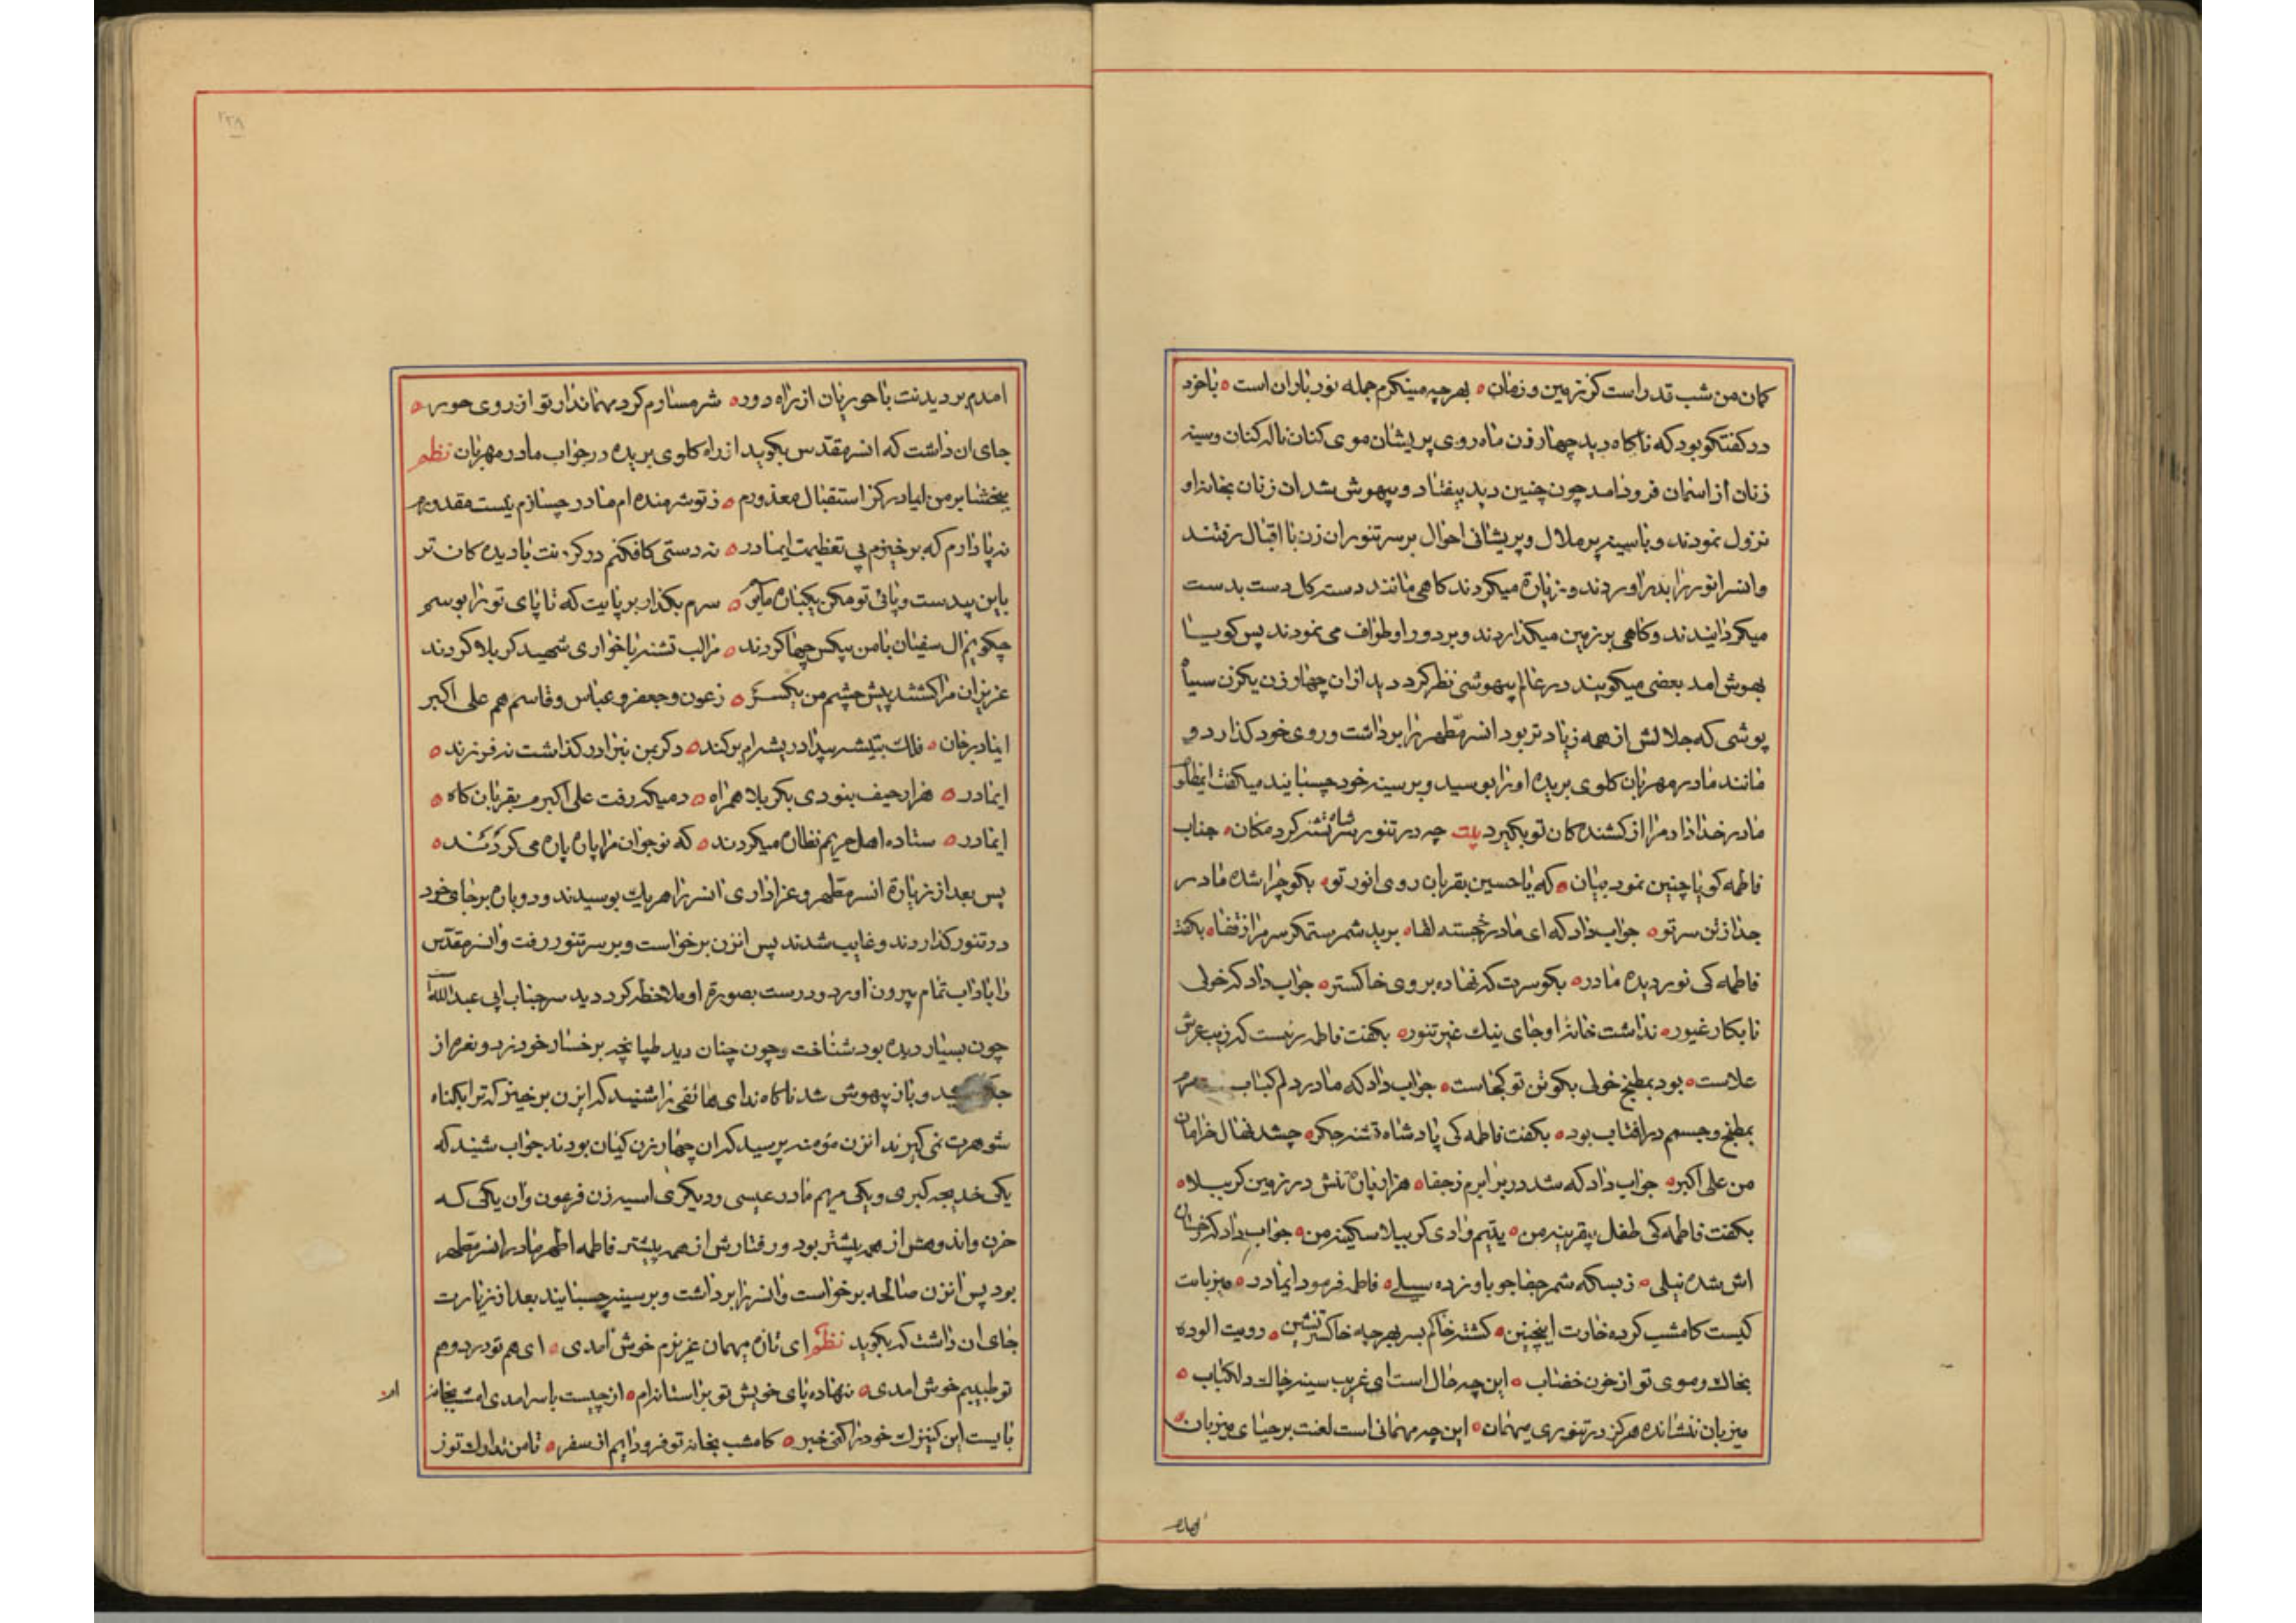 کمان من شب قدر است کز زمین و زمان ه بهر چه مینکرم جمله نور باران است ه باخود
در کفتکو بود که ناکاه دید چهار زن ماه روی پریشان موی کنان ناله کنان و سینه
زنان از اسمان فرود امد چون چنین دید بیفتاد و بیهوش شد ان زنان بخانه او
نزول نمودند و با سینه پر ملال و پریشانی احوال بر سر تنور ان زن با اقبال رفتند
و انسر انور را بدر اوردند و زیارة میکردند کاهی مانند دسته کل دست بدست
میکردانیدند و کاهی بر زمین میکذاردند و بر دور او طواف می نمودند پس کویا
بهوش امد بعضی میکویند در عالم بیهوشی نظر کرد دید از ان چهار زن یکزن سیاه
پوشی که جلالش از همه زیاد تر بود انسر مطهر را برداشت و روی خود کذارد و
مانند مادر مهربان کلوی بریده او را بوسید و بر سینه خود چسبانید میکفت ایمظلوم
مادر خدا داد مرا از کشنده کان تو بکیرد بیت چه در تنور سر شاه تشنه کرد مکان ه جناب
فاطمه کویا چنین نمود بیان ه که یا حسین بقربان روی انور تو ه بکو چرا شده مادر
جدا ز تن سر تو ه جواب داد که ای مادر خجسته لقا ه برید شمر ستمکر سر مرا ز قفا ه بکفت
فاطمه کی نور دیده مادر ه بکو سرت که نهاده بروی خاکستر ه جواب داد که خولی
نابکار غیور ه نداشت خانه او جای نیک غیر تنور ه بکفت فاطمه سریست که زیب عرش
علاست ه بود بمطبخ خولی بکو تن تو کجاست ه جواب داد که مادر دلم کباب سرم
بمطبخ و جسمم در افتاب بود ه بکفت فاطمه کی پادشاه تشنه جکر ه چشد نهال خرامان
من علی اکبر ه جواب داد که شد در برابرم ز جفا ه هزار پاره تنش در زمین کربلا ه
بکفت فاطمه کی طفل بیقرینه من ه یتیم وادی کربلا سکینه من ه جواب داد که رخسار
اش شده نیلی ه ز بسکه شمر جفاجو باو زده سیلی ه فاطمه فرمود ایمادر ه میزبانت
کیست کامشب کرده خارت اینچنین ه کشته خاکم بسر بهر چه خاکستر نشین ه رویت الوده
بخاک و موی تو از خون خضاب ه این چه حال است ای غریب سینه چاک دلکباب ه
میزبان ننشانده هرکز در تنوری میهمان ه این چه مهمانی است لعنت بر حیای میزبان ه
امدم
۲۲۸
امدم بر دیدنت با حوریان از راه دور ه شرمسارم کرد مهماندار تو از روی حور ه
جای ان داشت که انسر مقدس بکوید از راه کلوی بریده در جواب مادر مهربان نظم
ببخشا بر من ایمادر کز استقبال معذورم ه ز تو شرمنده ام مادر چسازم نیست مقدورم
نه پا دارم که برخیزم پی تعظیمت ایمادر ه نه دستی کافکنم در کردنت با دیده کان تر
باین بیدست و پائی تو مکن بیخانمان مابو ه سرم بکذار بر پایت که تا پای تو را بوسم
چکویم ال سفیان با من بیکس چها کردند ه مرا لب تشنه با خواری شهید کربلا کردند
عزیزان مرا کشتند پیش چشم من یکسر ه ز عون و جعفر و عباس و قاسم هم علی اکبر
ایمادر جان ه فلک بتیشه بیداد ریشه ام بر کند ه دکر بمن نبرادر کذاشت نه فرزند ه
ایمادر ه هزار حیف نبودی بکربلا همراه ه دمیکه رفت علی اکبرم بقربان کاه ه
ایمادر ه ستاده اهل حریمم نظاره میکردند ه که نوجوان مرا پاره پاره می کردند ه
پس بعد از زیارة انسر مطهر و عزاداری انسر را هریک بوسیدند و دوباره بر جای خود
در تنور کذاردند و غایب شدند پس انزن برخواست و بر سر تنور رفت و انسر مقدس
را با ادب تمام بیرون اورد و درست بصورة او ملاحظه کرد دید سر جناب ابی عبدالله
چون بسیار دیده بود شناخت و چون چنان دید طپانچه بر خسار خود زد و نعره از
جکر کشید و باز بیهوش شد ناکاه ندای هاتفی را شنید که ایزن برخیز که ترا بکناه
شوهرت نمی کیرند انزن مؤمنه پرسید که ان چهار زن کیان بودند جواب شنید که
یکی خدیجه کبری و یکی مریم مادر عیسی و دیکری اسیه زن فرعون و ان یکی که
حزن و اندوهش از همه بیشتر بود و رفتارش از همه بیشتر فاطمه اطهر مادر انسر مطهر
بود پس انزن صالحه برخواست و انسر را برداشت و بر سینه چسبانید بعد از زیارت
جای ان داشت که بکوید نظم ای تازه میهمان عزیزم خوش امدی ه ای هم تو درد و هم
تو طبیبم خوش امدی ه ننهاده پای خویش تو بر استانه ام ه از چیست با سر امدی امشب بخانه ام
بایست این کنیزک خود را کنی خبر ه کامشب بخانه تو فرود ایم از سفر ه تا من تدارک تو ز